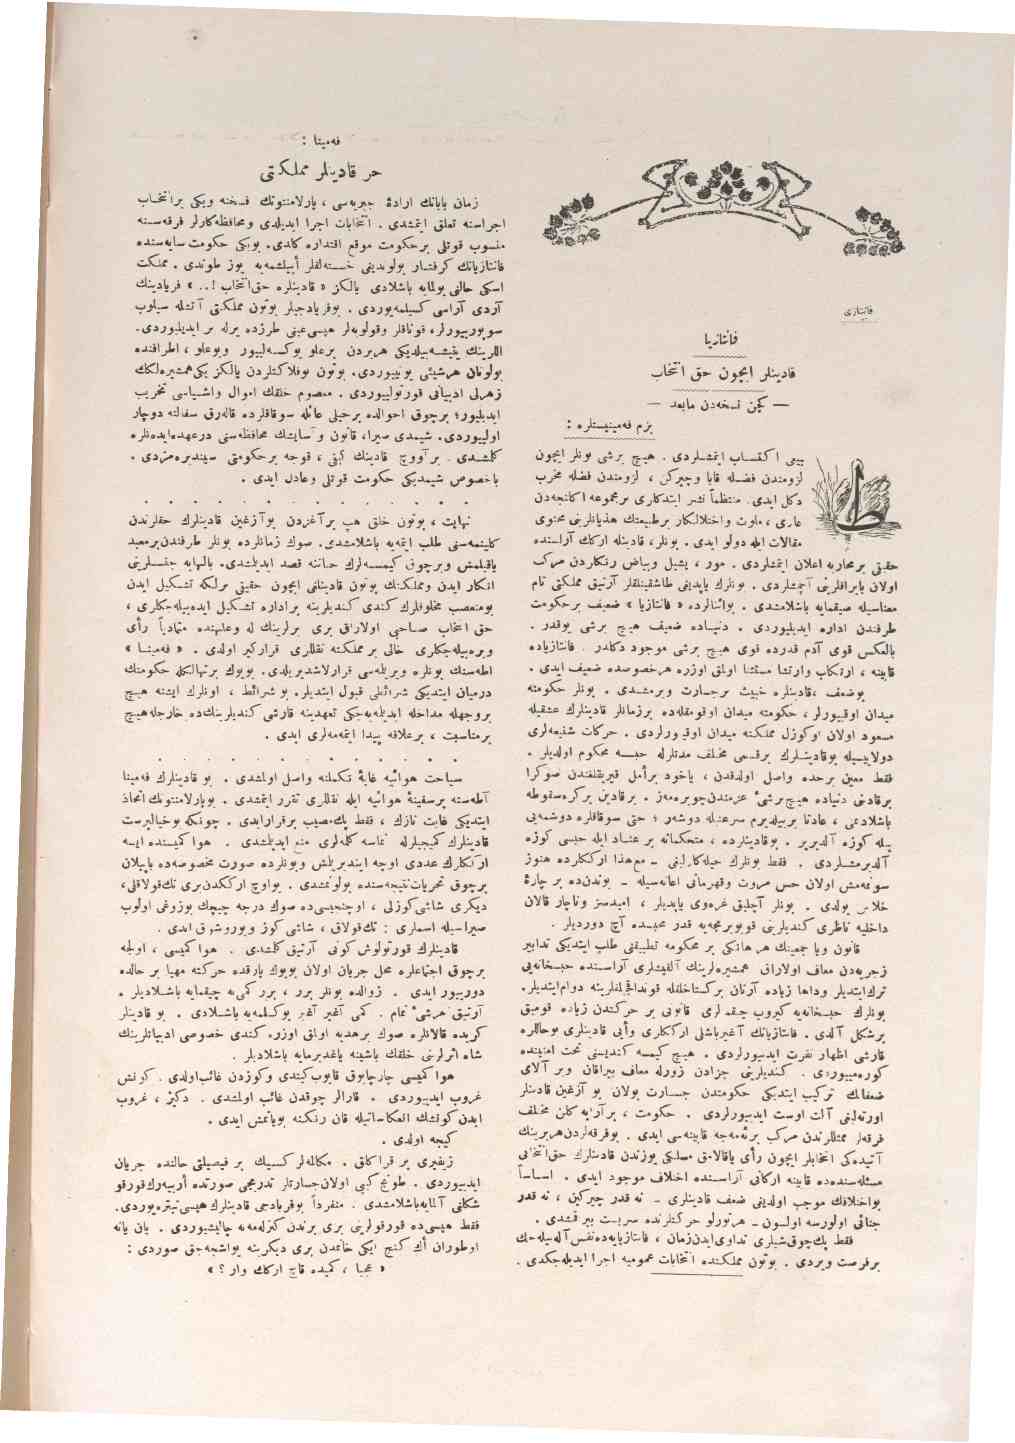 فانتازی
فانتازیا
قادینلر ایچون حق انتخاب
— كچن نسخه‌دن مابعد —
بزم فه‌مینیستلره :
بیعی اكتساب ایتمشلردی . هیچ برشی بونلر ایچون
لزومندن فضله قابا وچیركن ، لزومندن فضله مخرب
دكل ایدی. منتظماً نشر ایتدكلری برمجموعه اكلنجه‌دن
عاری ، ملوث واختلالكار برطبیعتك هذیانلرینی محتوی
مقالات ایله دولو ایدی . بونلر، قادینله اركك آراسنده
حقیقی برمحاربه اعلان ایتمشلردی . مور ، یشیل وبیاض رنكلردن مركب
اولان بایراقلرینی آچمشلردی . بونلرك یاپدیغی طاشقینلقلر آرتیق مملكتی تام
معناسیله صیقمایه باشلامشدی . بواثنالرده « فانتازیا » ضعیف برحكومت
طرفندن اداره ایدیلیوردی . دنیاده ضعیف هیچ برشی یوقدر .
بالعكس قوی آدم قدرده قوی هیچ برشی موجود دكلدر . فانتازیاده
قابینه ، ارتكاب وارتشا مستثنا اولمق اوزره هرخصوصده ضعیف ایدی .
بوضعف ، قادینلره خبیث برجسارت ویرمشدی . بونلر حكومته
میدان اوقییورلر ، حكومته میدان اوقومقله‌ده برزمانلر قادینلرك عشقیله
مسعود اولان اوكوزل مملكته میدان اوقیورلردی . حركات شنیعه‌لری
دولاییسیله بوقادینلرك برقسمی مختلف مدتلرله حبسه محكوم اولدیلر .
فقط معین برحده واصل اولدقدن ، یاخود برأمل قیریقلغندن صوكرا
برقادینی دنیاده هیچ‌برشیٔ عزمندن‌چویره‌مه‌ز . برقادین بركره‌سقوطه
باشلادیمی ، عادتا بریبلدیرم سرعتیله دوشه‌ر ؛ حتی سوقاقلره دوشمه‌یی
بیله كوزه آلدیریر . بوقادینلرده ، متحكمانه بر عناد ایله حبسی كوزه
آلدیرمشلردی . فقط بونلرك حیله‌كارلغی — مع‌هذا ارككلرده هنوز
سونمه‌مش اولان حس مروت وقهرمانی اعانه‌سیله — بوندن‌ده بر چارهٔ
خلاص بولدی . بونلر آچلیق غره‌وی یاپدیلر ، امیدسز وناچار قالان
داخلیه ناظری كندیلرینی قوبویرمجه‌یه قدر محبسده آچ دوردیلر .
قانون ویا جمعیتك هر هانكی بر محكومه تطبیقنی طلب ایتدیكی تدابیر
زجریه‌دن معاف اولاراق همشیره‌لرینك آلقیشلری آراسنده حبسخانه‌یی
ترك‌ایتدیلر وداها زیاده آرتان بركستاخلقله قونداقچیلقلرینه دوام‌ایتدیلر.
بونلرك حبسخانه‌یه كیروب چیقمه‌لری قانونی بر حركتدن زیاده قومیق
برشكل آلدی . فانتازیانك آغیرباشلی ارككلری وأیی قادینلری بوحاللره
قارشی اظهار نفرت ایدییورلردی . هیچ كیمسه كندیسنی تحت امنیتده
كورمه‌ییوردی . كندیلرینی جزادن زورله معاف بیراقان وبر آلای
ضعفانك تركیب ایتدیكی حكومتدن جسارت بولان بو آزغین قادینلر
اورته‌لغی آلت اوست ایدییورلردی . حكومت ، برآرایه كلن مختلف
فرقه‌لر ممثللرندن مركب برئه‌مه‌جه قابینه‌سی ایدی . بوفرقه‌لردن‌هربرینك
آتیده‌كی انتخابلر ایچون رأی یاقالامق مسلكی یوزندن قادینلرك حق‌انتخابی
مسئله‌سنده‌ده قابینه اركانی آراسنده اختلاف موجود ایدی . اساساً
بواختلافك موجب اولدیغی ضعف قادینلری — نه قدر چیركین ، نه قدر
جنائی اولورسه اولسون — هرتورلو حركتلرنده سربست بیراقمشدی .
فقط پك‌چوق‌شیلری تداوی‌ایدن‌زمان ، فانتازیایه‌ده‌نفس آله‌بیله‌جك
برفرصت ویردی . بوتون مملكتده انتخابات عمومیه اجرا ایدیله‌جكدی .
فه‌مینا :
حر قادینلر مملكتی
زمان بابانك ارادهٔ جبریه‌سی ، پارلامنتونك فسخنه ویكی برانتخاب
اجراسنه تعلق ایتمشدی . انتخابات اجرا ایدیلدی ومحافظه‌كارلر فرقه‌سنه
منسوب قوتلی برحكومت موقع اقتداره كلدی. بویكی حكومت سایه‌سنده
فانتازیانك گرفتار بولوندیغی خسته‌لقلر أییلشمه‌یه یوز طوتدی . مملكت
اسكی حالنی بولمایه باشلادی یالكز « قادینلره حق‌انتخاب !.. » فریادینك
آردی آراسی كسیلمه‌یوردی . بوفریادجیلر بوتون مملكتی آتشله سیلوب
سوپوریبورلر، قوناقلر وقولوبه‌لر هپسی‌عینی طرزده یرله بر ایدیلیوردی.
اللرینك یتیشه‌بیلدیكی هریردن برعلو یوكسه‌لییور وبوعلو ، اطرافنده
بولونان هرشیئی یوتییوردی. بوتون بوفلاكتلردن یالكز یكی‌همشیره‌لكك
زهرلی ادبیاتی قورتولییوردی . معصوم خلقك اموال واشیاسی تخریب
ایدیلیور؛ برچوق احوالده برخیلی عائله سوقاقلرده قاله‌رق سفالته دوچار
اولییوردی. شیمدی صیرا، قانون وآسایشك محافظه‌سنی درعهده‌ایده‌نلره
كلمشدی . برآووچ قادینك كینی ، قوجه برحكومتی سیندیره‌مزدی .
باخصوص شیمدیكی حكومت قوتلی وعادل ایدی .
نهایت ، بوتون خلق هپ برآغزدن بوآزغین قادینلرك حقلرندن
كلینمه‌سنی طلب ایتمه‌یه باشلامشدی. صوك زمانلرده بونلر طرفندن‌برمعبد
یاقیلمش وبرچوق كیمسه‌لرك حیاتنه قصد ایدیلمشدی. بالنهایه جنسلرینی
انكار ایدن ومملكتك بوتون قادینلغی ایچون حقیقی برلكه تشكیل ایدن
بومتعصب مخلوقلرك كندی كندیلرینه براداره تشكیل ایده‌بیله‌جكلری ،
حق انتخاب صاحبی اولاراق بری برلرینك له وعلیهنده متمادیاً رأی
ویره‌بیله‌جكلری خالی برمملكته نقللری قرارگیر اولدی . « فه‌مینا »
اطه‌سنك بونلره ویریلمه‌سی قرارلاشدیریلدی. بویوك برتهالكله حكومتك
درمیان ایتدیكی شرائطی قبول ایتدیلر. بو شرائط ، اونلرك ایشنه هیچ
بروجهله مداخله ایدیلمه‌یه‌جكی تعهدینه قارشی كندیلرینك‌ده خارجله‌هیچ
برمناسبت ، برعلاقه پیدا ایتمه‌مه‌لری ایدی .
سیاحت هوائیه غایهٔ تكملنه واصل اولمشدی . بو قادینلرك فه‌مینا
آطه‌سنه برسفینهٔ هوائیه ایله نقللری تقرر ایتمشدی . بوپارلامنتونك اتخاذ
ایتدیكی غایت نازك ، فقط پك‌مصیب برقرارایدی . چونكه بوخیالپرست
قادینلرك كمیجیلرله تماسه كلمه‌لری منع ایدیلمشدی . هوا كمیسنده ایسه
ارككلرك عددی اوچه ایندیریلمش وبونلرده صورت مخصوصه‌ده یاپیلان
برچوق تحریات‌نتیجه‌سنده بولونمشدی . بواوچ ارككدن‌بری تك‌قولاقلی،
دیكری شاشی‌كوزلی ، اوچنجیسی‌ده صوك درجه چیچك بوزوغی اولوب
صیراسیله اسملری : تك‌قولاق ، شاشی كوز وبوروشوق ایدی .
قادینلرك قورتولوش كونی آرتیق كلمشدی . هوا كمیسی ، اولجه
برچوق اجتماعلره محل جریان اولان بویوك پارقده حركته مهیا بر حالده
دورییور ایدی . زوالده بونلر برر ، برر كمی‌یه چیقمایه باشلادیلر .
آرتیق هرشیٔ تمام . كمی آغیر آغیر یوكسلمه‌یه باشلادی . بو قادینلر
كریده قالانلره صوك برهدیه اولمق اوزره كندی خصوصی ادبیاتلرینك
شاه اثرلرینی خلقك باشینه یاغدیرمایه باشلادیلر .
هوا كمیسی چارچابوق قایوب‌كیتدی وكوزدن غائب‌اولدی . كونش
غروب ایدییوردی . قارالر چوقدن غائب اولمشدی . دكیز ، غروب
ایدن كونشك انعكاساتیله قان رنكنه بویانمش ایدی .
كیجه اولدی .
زیفیری بر قراكلق . مكالمه‌لر كسیك بر فیصیلتی حالنده جریان
ایدییوردی . طونج كبی اولان‌جسارتلر تدریجی صورتده أرییه‌رك‌قورقو
شكلنی آلمایه‌باشلامشدی . منفرداً بوفریادجی قادینلرك هپسی‌تیتره‌یوردی.
فقط هپسی‌ده قورقولرینی بری برندن كیزله‌مه‌یه چالیشیوردی . یان یانه
اوطوران أك كنج ایكی خانمدن بری دیكرینه یواشجه‌جق صوردی :
« عجبا ، كمیده قاچ اركك وار ؟ »